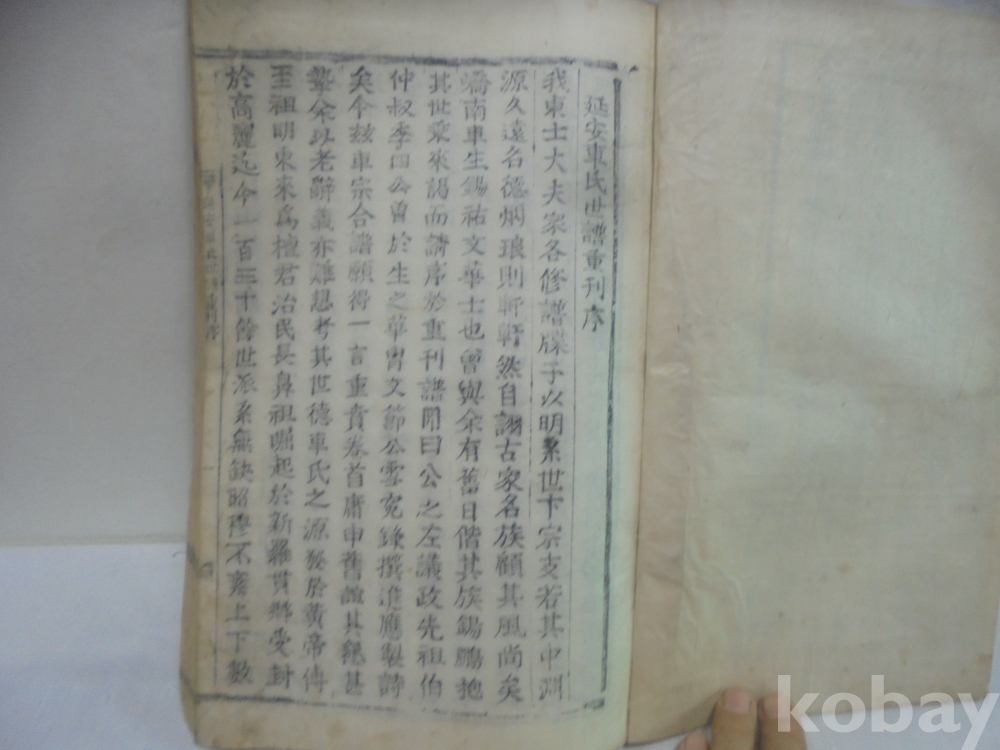 延安車氏世譜重刊序
我東士大夫家各修譜牒子以明系世下宗支若其中淵
源久遠名德炳琅則軒軒然自詡古家名族顧其風尚矣
嶠南車生錫祐文華士也曾與余有舊日偕其族錫鵬抱
其世乘來謁而請序於重刊譜因曰公之左議政先祖伯
仲叔季四公曾於生之華冑文節公雪冤錄撰進應製詩
矣今玆車宗合譜願得一言重賁卷首庸申舊誼其懇甚
摯余以老辭義亦難恝考其世德車氏之源發於黃帝傳
至祖明東來爲檀君治民長鼻祖崛起於新羅貫鄕受封
於高麗迄今一百三十餘世派系無缺昭穆不紊上下數
kobay